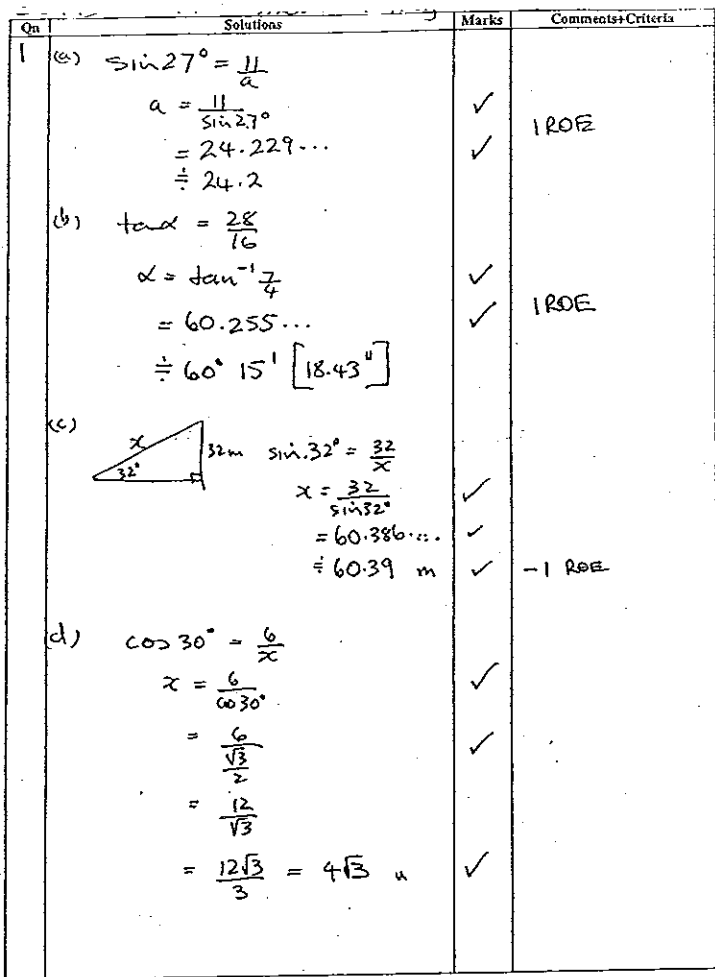 Qn Solutions Marks Comments+Criteria
1 (a) sin27° = 11/a
a = 11/sin27° ✓
1 ROE
= 24.229... ✓
≑ 24.2
(b) tanα = 28/16
α = tan⁻¹ 7/4 ✓
= 60.255... ✓ 1 ROE
≑ 60° 15' [18.43"]
(c)
x 32m sin.32° = 32/x
32°
x = 32/sin32° ✓
= 60.386.... ✓
≑ 60.39 m ✓ -1 ROE
(d) cos30° = 6/x
x = 6/cos30° ✓
= 6/(√3/2) ✓
= 12/√3
= 12√3/3 = 4√3 u ✓